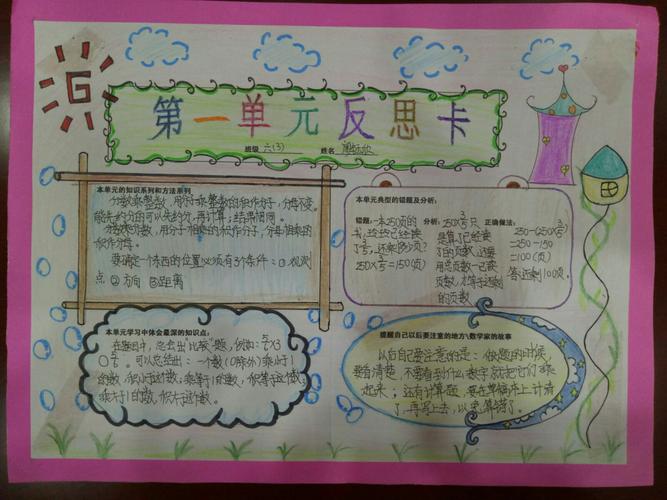 第一单元反思卡
班级 六(3) 姓名
本单元的知识系列和方法系列
分数乘整数，用分子乘整数的积作分子，分母不变。
能先约分的可以先约分，再计算，结果相同。
分数乘分数，用分子相乘的积作分子，分母相乘的
积作分母。
要确定一个东西的位置必须有3个条件：①观测
点 ②方向 ③距离
本单元典型的错题及分析：
错题：一本250页的
书，
了3/5，还剩多少页？
250×3/5=150(页)
分析：250×3/5只
是算了已经读
了的页数，还要
用总页数-已读
页数，才等于还剩
的页数
正确做法：
250-(250×3/5)
=250-150
=100(页)
答：还剩100页。
本单元学习中体会最深的知识点：
在题目中，总会出比较题，例如：
可以总结出：一个数(0除外)乘小于1
的数，积小于这个数，乘等于1的数，积等于这个数；
乘大于1的数，积大于这个数。
提醒自己以后要注意的地方\数学家的故事
以后自己要注意的是：做题的时候
要看清楚，不要看到什么数字就把它们乘
起来；还有计算题，要在草稿本上计清
了，再写上去，以免算错了。